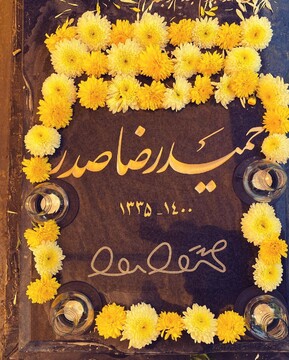 حمیدرضا صدر
۱۳۳۵ - ۱۴۰۰